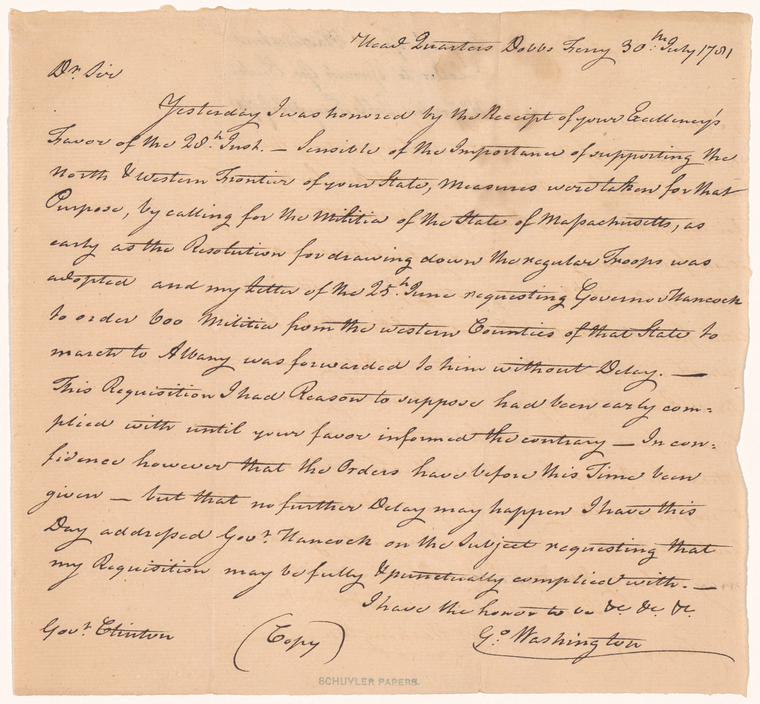 Head Quarters Dobbs Ferry 30th July 1781
Dr Sir
Yesterday I was honored by the Receipt of your Excellency's
Favor of the 28th Inst. — Sensible of the Importance of supporting the
North & Western Frontier of your State, measures were taken for that
Purpose, by calling for the Militia of the State of Massachusetts, as
early as the Resolution for drawing down the regular Troops was
adopted and my Letter of the 25th June requesting Governor Hancock
to order 600 Militia from the western Counties of that State to
march to Albany was forwarded to him without Delay. —
This Requisition I had Reason to suppose had been early com=
plied with until your favor informed the contrary — In con=
fidence however that the Orders have before this Time been
given — but that no further Delay may happen I have this
Day addressed Govr. Hancock on the Subject requesting that
my Requisition may be fully & punctually complied with. —
I have the honor to be &c. &c. &c.
Govr. Clinton (Copy) Go Washington
SCHUYLER PAPERS.